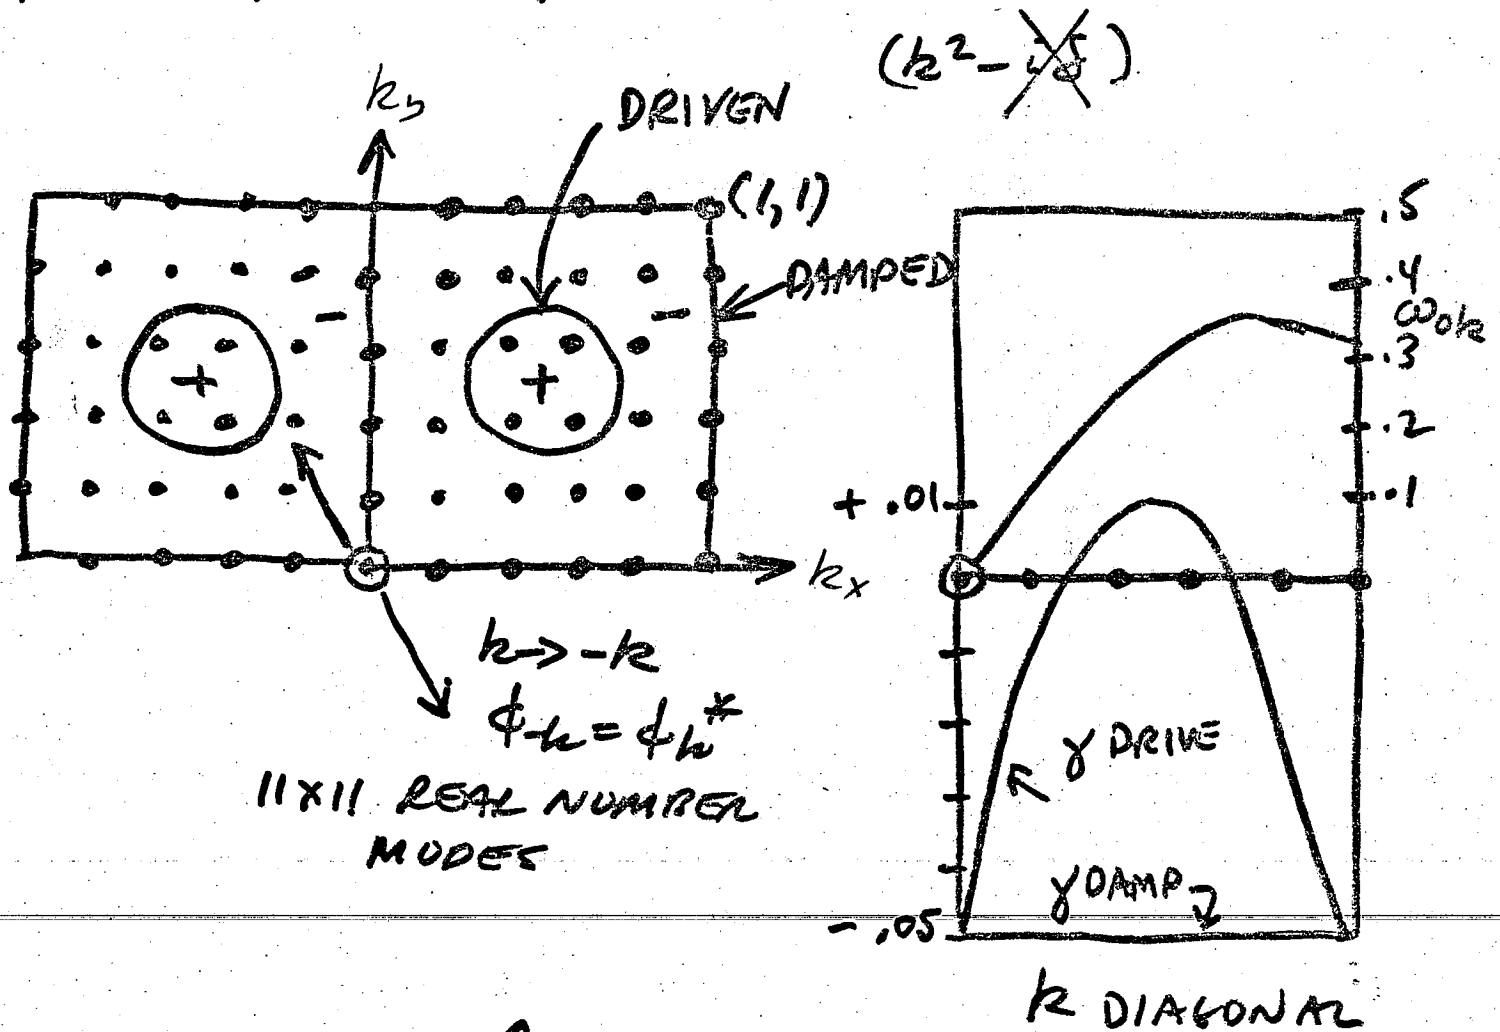 (k² - .5)
k_y
DRIVEN
(1,1)
DAMPED
+
-
+
-
k_x
k → -k
ϕ_-k = ϕ_k*
11X11 REAL NUMBER
MODES
.5
.4
ω_ok
.3
.2
.1
+ .01
γ DRIVE
γ DAMP
- .05
k DIAGONAL